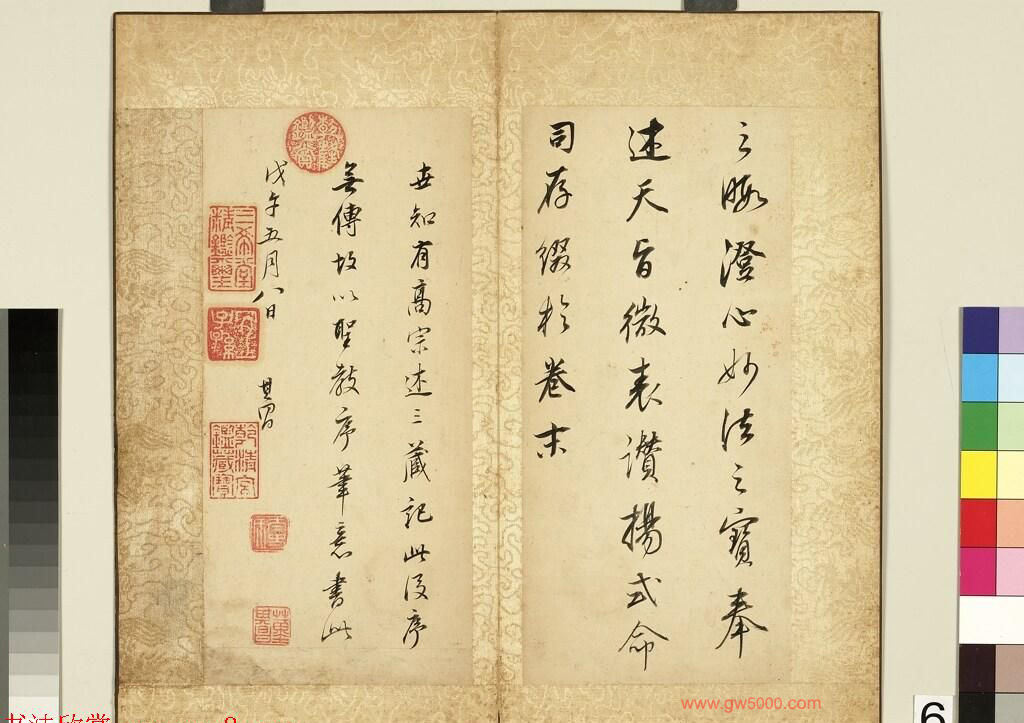 之暇澄心妙法之寶奉
述天旨微表讚揚式命
司存綴於卷末
世知有高宗述三藏記此後序
無傳故以聖教序筆意書此
戊午五月八日 其昌
三希堂
精鑑璽
宜子孫
乾隆鑑賞
乾清宮
鑑藏寶
董其昌
www.gw5000.com
书法欣赏
6